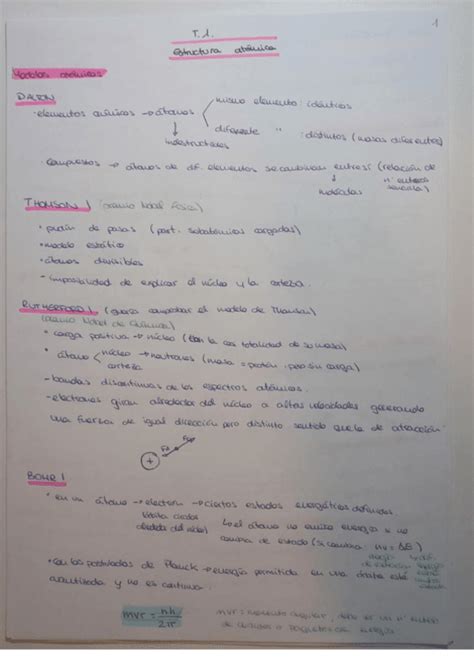 1
T.1.
Estructura atómica
Modelos atómicos
DALTON
· elementos químicos → átomos
mismo elemento: idénticos
diferente " : distintos (masas diferentes)
↓
indestructibles
compuestos → átomos de dif. elementos se combinan entre sí (relación de
nº enteros
sencilla)
↓
moléculas
THOMSON (premio Nobel física)
• pudin de pasas (part. subatómicas cargadas)
• modelo estático
• átomos divisibles
- imposibilidad de explicar el núcleo y la corteza.
RUTHERFORD (quería comprobar el modelo de Thomson)
(premio Nobel de Química)
• carga positiva → núcleo (con la casi totalidad de su masa)
• átomo
núcleo → neutrones (masa = protón, pero sin carga)
corteza
- bandas discontinuas de los espectros atómicos.
- electrones giran alrededor del núcleo a altas velocidades generando
una fuerza de igual dirección pero distinto sentido que la de atracción
+
BOHR
• en un átomo → electrón → ciertos estados energéticos definidos.
↳ el átomo no emite energía si no
cambia de estado (si cambia: hν = ΔE)
• Con los postulados de Planck → energía permitida en una órbita está
cuantizada y no es continua.
mvr = nh/2π
mvr = momento angular, debe ser un nº entero
de energía